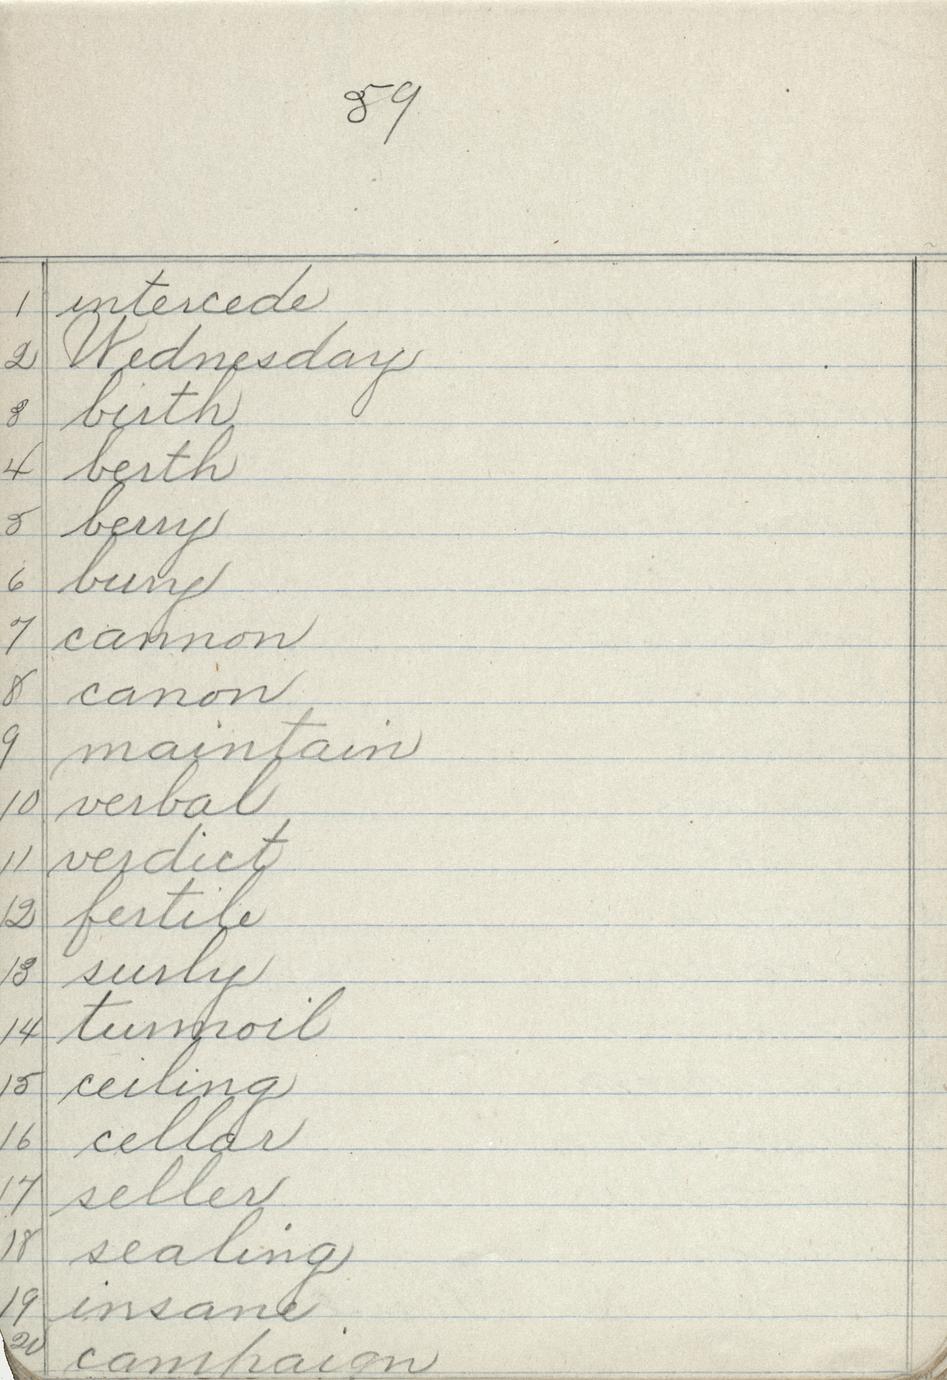 59
1 intercede
2 Wednesday
3 birth
4 berth
5 berry
6 bury
7 cannon
8 canon
9 maintain
10 verbal
11 verdict
12 fertile
13 surly
14 turmoil
15 ceiling
16 cellar
17 seller
18 sealing
19 insane
20 campaign